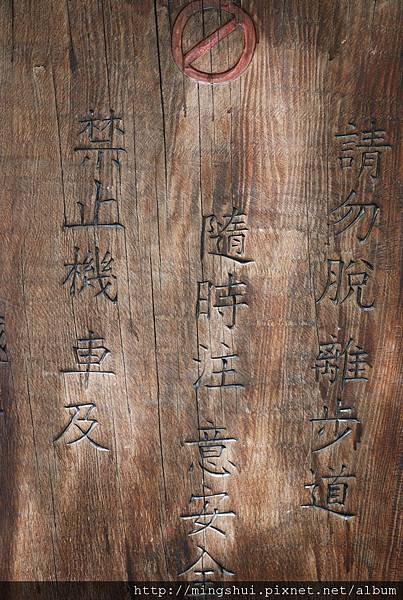 請勿脫離步道
隨時注意安全
禁止機車及
http://mingshui.pixnet.net/album